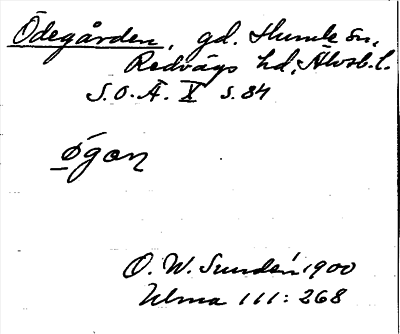 Ödegården, gd. Humla sn,
Redvägs hd, Älvsb. l.
S.O.Ä. X s. 84
øgan
O. W. Sundén 1900
Ulma 111:268